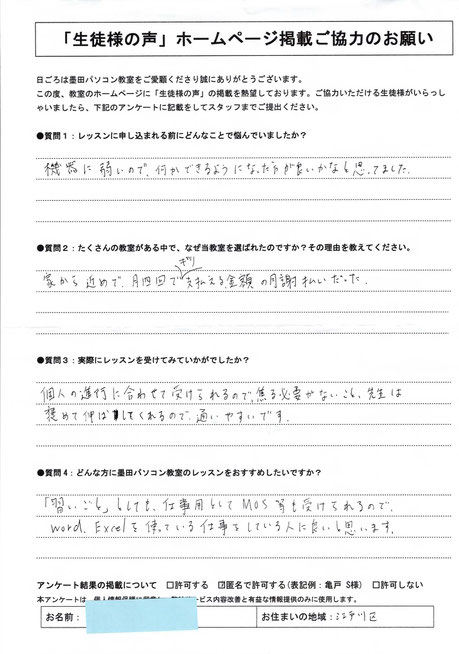 「生徒様の声」ホームページ掲載ご協力のお願い
日ごろは墨田パソコン教室をご愛顧くださり誠にありがとうございます。
この度、教室のホームページに「生徒様の声」の掲載を熱望しております。ご協力いただける生徒様がいらっし
ゃいましたら、下記のアンケートに記載をしてスタッフまでご提出ください。
●質問1：レッスンに申し込まれる前にどんなことで悩んでいましたか？
機器に弱いので、何かできるようになった方が良いかなと思ってました。
●質問2：たくさんの教室がある中で、なぜ当教室を選ばれたのですか？その理由を教えてください。
ギリ
家から近めで、月四回で支払える金額の月謝払いだった。
●質問3：実際にレッスンを受けてみていかがでしたか？
個人の進行に合わせて受けられるので、焦る必要がないことと、先生は
褒めて伸ばしてくれるので、通いやすいです。
●質問4：どんな方に墨田パソコン教室のレッスンをおすすめしたいですか？
「習いごと」としても、仕事用としてMOS等も受けられるので、
word、Excelを使っている仕事をしている人に良いと思います。
アンケート結果の掲載について　□許可する　☑匿名で許可する(表記例：亀戸 S様)　□許可しない
本アンケートは、個人情報保護に配慮し、教室サービス内容改善と有益な情報提供のみに使用します。
お名前：　お住まいの地域：江戸川区